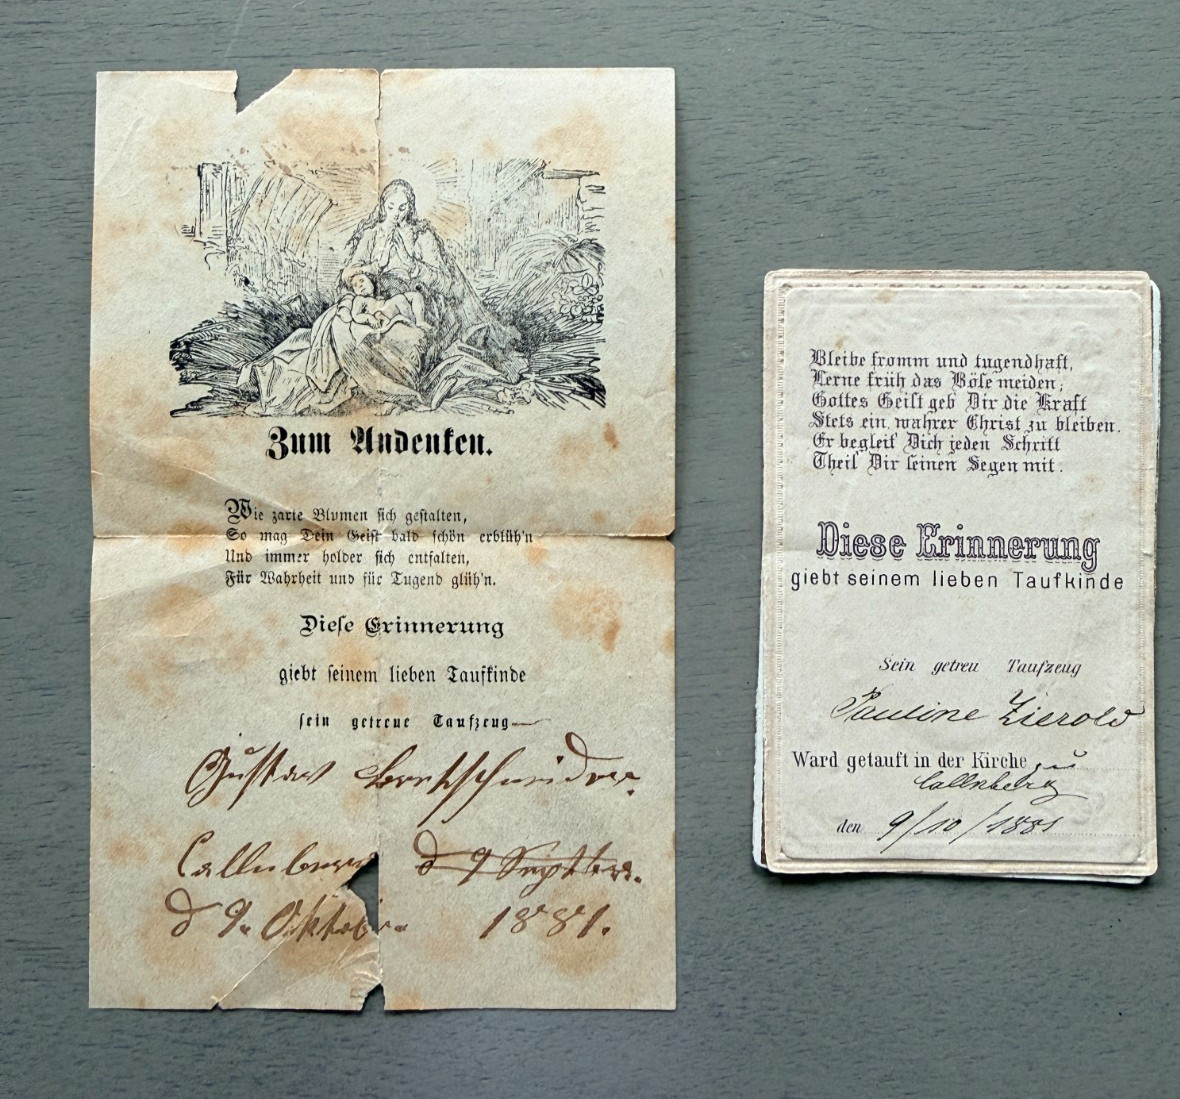 Zum Andenken.
Wie zarte Blumen sich gestalten,
So mag Dein Geist bald schön erblüh'n
Und immer holder sich entfalten,
Für Wahrheit und für Tugend glüh'n.
Diese Erinnerung
giebt seinem lieben Taufkinde
sein getreue Taufzeug
Gustav Bretschneider.
Callnberg d 9 Septbr.
d 9. Oktober 1881.
Bleibe fromm und tugendhaft,
Lerne früh das Böse meiden;
Gottes Geist geb Dir die Kraft
Stets ein wahrer Christ zu bleiben.
Er begleit Dich jeden Schritt
Theil Dir seinen Segen mit.
Diese Erinnerung
giebt seinem lieben Taufkinde
Sein getreu Taufzeug
Pauline Zierold
Ward getauft in der Kirche zu
Callnberg
den 9/10/1881